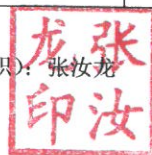 职）：张汝龙
张汝
龙印